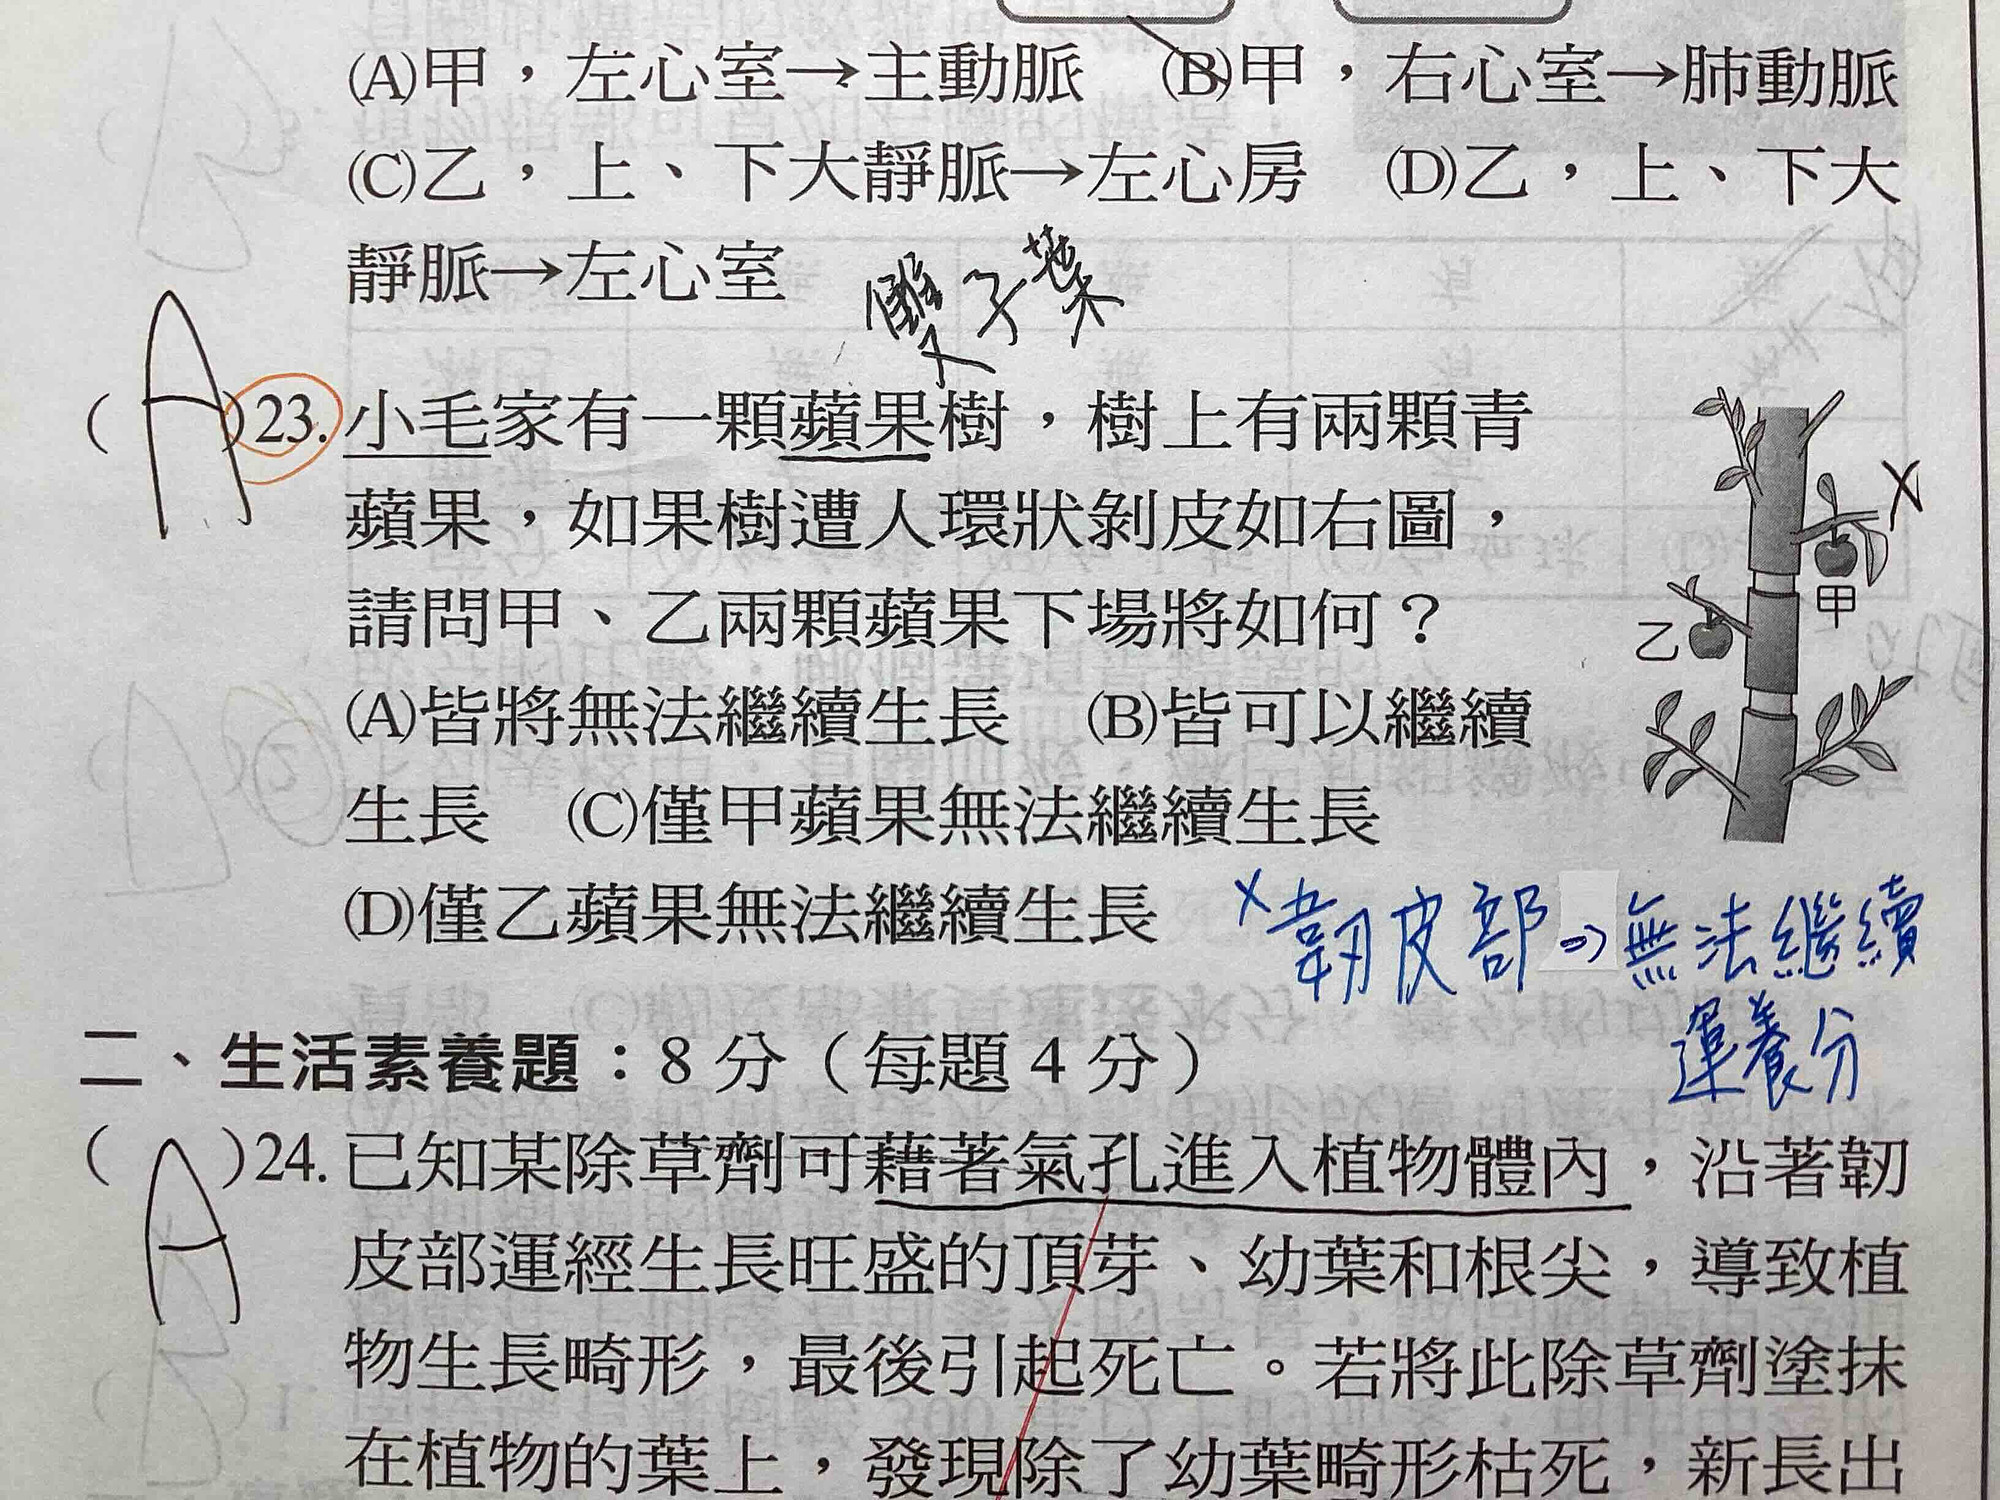 (A)甲，左心室→主動脈　(B)甲，右心室→肺動脈
(C)乙，上、下大靜脈→左心房　(D)乙，上、下大
靜脈→左心室
雙子葉
( A )23.小毛家有一顆蘋果樹，樹上有兩顆青
蘋果，如果樹遭人環狀剝皮如右圖，
請問甲、乙兩顆蘋果下場將如何？
(A)皆將無法繼續生長　(B)皆可以繼續
生長　(C)僅甲蘋果無法繼續生長
(D)僅乙蘋果無法繼續生長
X
甲
乙
x韌皮部⇒無法繼續
運養分
二、生活素養題：8 分（每題 4 分）
( A )24.已知某除草劑可藉著氣孔進入植物體內，沿著韌
皮部運經生長旺盛的頂芽、幼葉和根尖，導致植
物生長畸形，最後引起死亡。若將此除草劑塗抹
在植物的葉上，發現除了幼葉畸形枯死，新長出